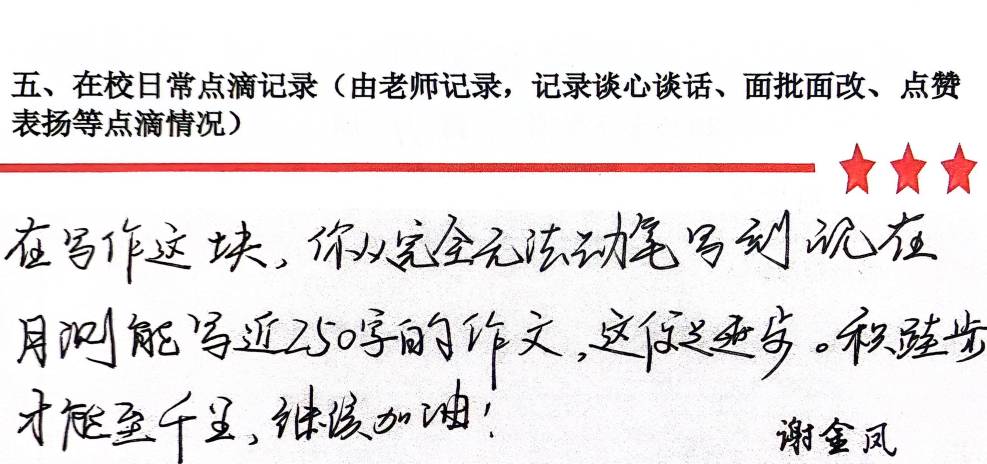 五、在校日常点滴记录（由老师记录，记录谈心谈话、面批面改、点赞
表扬等点滴情况）
在写作这块，你从完全无法动笔写到现在
月测能写近250字的作文，这便是进步。积跬步
才能至千里，继续加油！
谢金凤